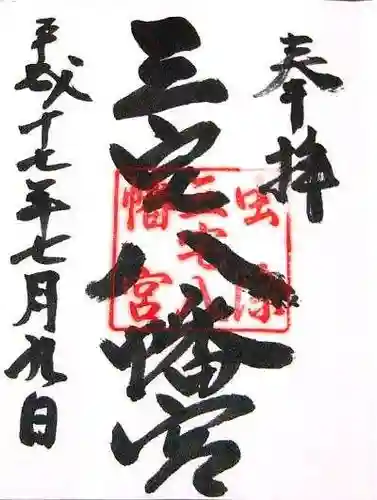 奉拝
三宅八幡宮
平成十七年七月九日
三宅八
幡宮